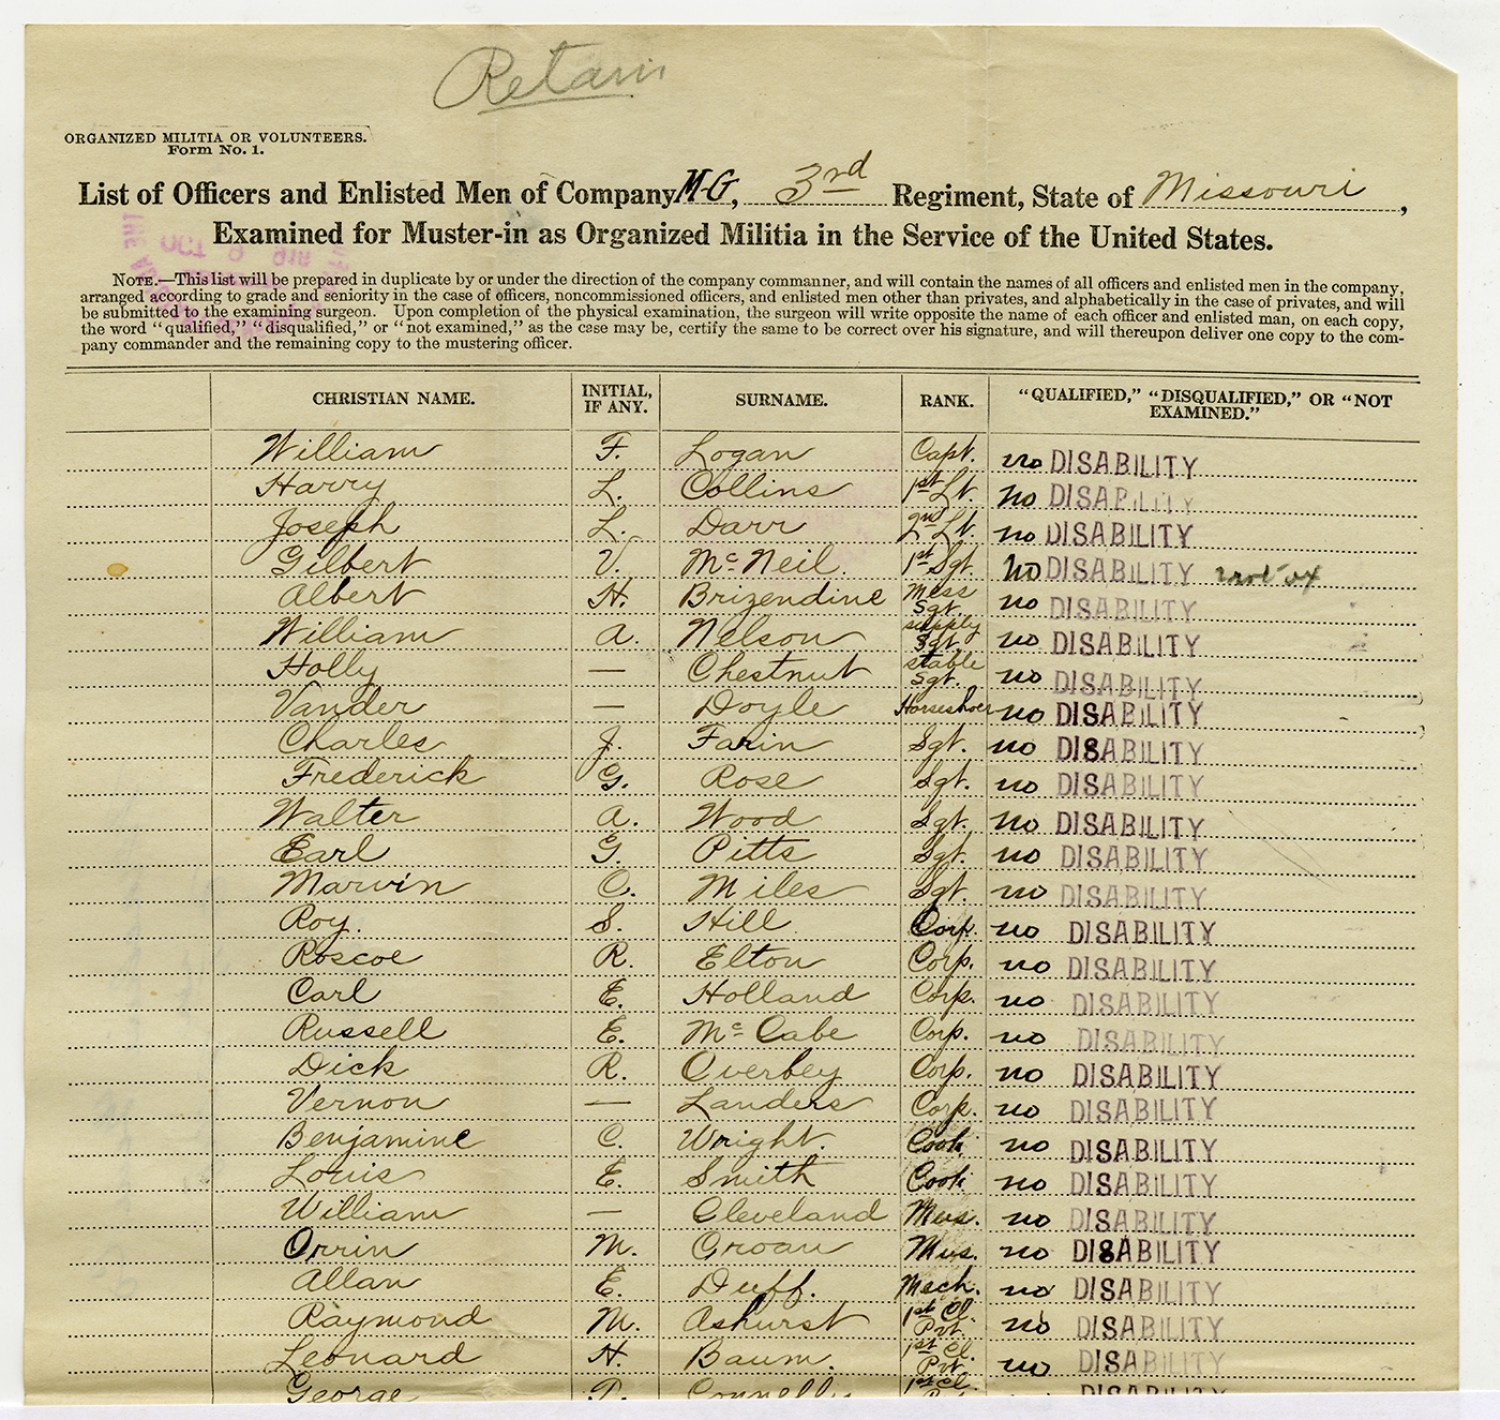 Retain
ORGANIZED MILITIA OR VOLUNTEERS.
Form No. 1.
List of Officers and Enlisted Men of Company M-G, 3rd Regiment, State of Missouri,
Examined for Muster-in as Organized Militia in the Service of the United States.
NOTE.—This list will be prepared in duplicate by or under the direction of the company commanner, and will contain the names of all officers and enlisted men in the company,
arranged according to grade and seniority in the case of officers, noncommissioned officers, and enlisted men other than privates, and alphabetically in the case of privates, and will
be submitted to the examining surgeon. Upon completion of the physical examination, the surgeon will write opposite the name of each officer and enlisted man, on each copy,
the word "qualified," "disqualified," or "not examined," as the case may be, certify the same to be correct over his signature, and will thereupon deliver one copy to the com-
pany commander and the remaining copy to the mustering officer.
CHRISTIAN NAME. INITIAL, IF ANY. SURNAME. RANK. "QUALIFIED," "DISQUALIFIED," OR "NOT EXAMINED."
William F. Logan Capt. no DISABILITY
Harry L. Collins 1st Lt. no DISABILITY
Joseph L. Darr 2nd Lt. no DISABILITY
Gilbert V. McNeil. 1st Sgt. No DISABILITY not ex
Albert H. Brizendine Mess Sgt. no DISABILITY
William A. Nelson supply Sgt. no DISABILITY
Holly — Chestnut stable Sgt. no DISABILITY
Vander — Doyle Horseshoer no DISABILITY
Charles J. Farin Sgt. no DISABILITY
Frederick G. Rose Sgt. no DISABILITY
Walter A. Wood Sgt. no DISABILITY
Earl G. Pitts Sgt. no DISABILITY
Marvin O. Miles Sgt. no DISABILITY
Roy. S. Hill Corp. no DISABILITY
Roscoe R. Elton Corp. no DISABILITY
Carl E. Holland Corp. no DISABILITY
Russell E. McCabe Corp. no DISABILITY
Dick R. Overbey Corp. no DISABILITY
Vernon — Landers Corp. no DISABILITY
Benjamine C. Wright. Cook no DISABILITY
Louis E. Smith Cook no DISABILITY
William — Cleveland Mus. no DISABILITY
Orrin M. Groau Mus. no DISABILITY
Allan E. Duff. Mech. no DISABILITY
Raymond M. Ashurst 1st Cl. Pvt. no DISABILITY
Leonard H. Baum. 1st Cl. Pvt. no DISABILITY
George Connelly 1st Cl. DISABILITY